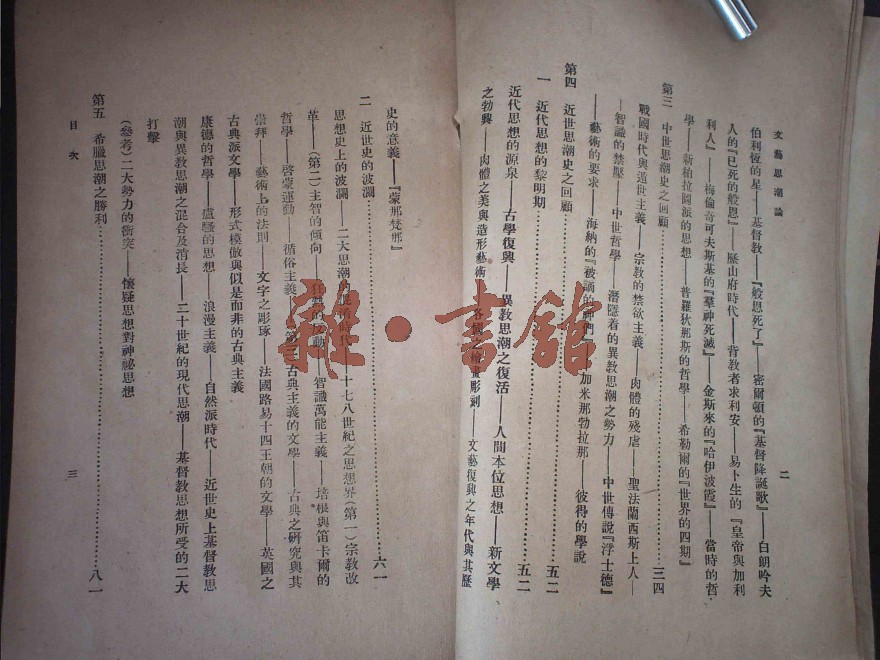 文藝思潮論
二
伯利恆的星——基督教——『般恩死了』——密爾頓的『基督降誕歌』——白朗吟夫
人的『已死的般恩』——歷山府時代——背教者求利安——易卜生的『皇帝與加利
利人』——梅倫奇可夫斯基的『羣神死滅』——金斯來的『哈伊波霞』——當時的哲
學——新柏拉圖派的思想——普羅狄那斯的哲學——希勒爾的『世界的四期』
第三 中世思潮史之回顧……三四
戰國時代與遁世主義——宗教的禁欲主義——肉體的殘虐——聖法蘭西斯上人—
—智識的禁壓——中世哲學——潛隱着的異教思潮之勢力——中世傳說『浮士德』
——藝術的要求——海納的『被謫的神們』——加米那勃拉那——彼得的學說
第四 近世思潮史之回顧……五二
一 近代思想的黎明期……五二
近代思想的源泉——古學復興——異教思潮之復活——人間本位思想——新文學
之勃興——肉體之美與造形藝術——各國之繪畫彫刻——文藝復興之年代與其歷
史的意義——『蒙那梵那』
二 近世史的波瀾……六一
思想史上的波瀾——二大思潮的混淆時代——十七八世紀之思想界(第一)宗教改
革——(第二)主智的傾向——狂熱的反動——智識萬能主義——培根與笛卡爾的
哲學——啓蒙運動——循俗主義——(第三)古典主義的文學——古典之硏究與其
崇拜——藝術上的法則——文字之彫琢——法國路易十四王朝的文學——英國之
古典派文學——形式模倣與似是而非的古典主義
康德的哲學——盧騷的思想——浪漫主義——自然派時代——近世史上基督教思
潮與異教思潮之混合及消長——二十世紀的現代思潮——基督教思想所受的二大
打擊
(參考)二大勢力的衝突——懷疑思想對神祕思想
第五 希臘思潮之勝利……八一
目次
三
雜·書館